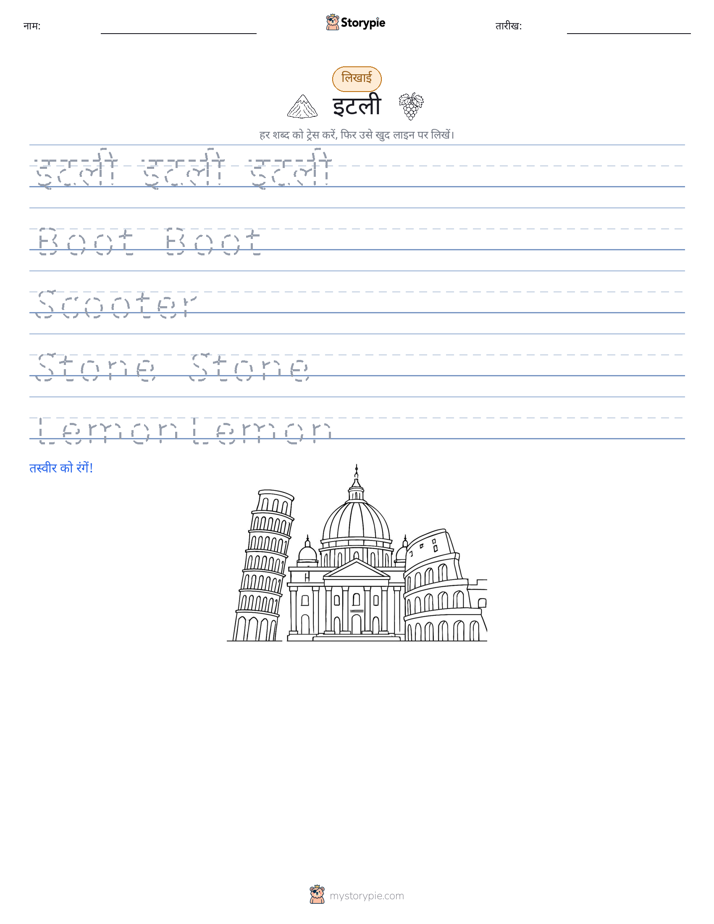 नाम:
Storypie
तारीख:
लिखाई
इटली
हर शब्द को ट्रेस करें, फिर उसे खुद लाइन पर लिखें।
इटली इटली इटली
Boot Boot
Scooter
Stone Stone
Lemon Lemon
तस्वीर को रंगें!
mystorypie.com